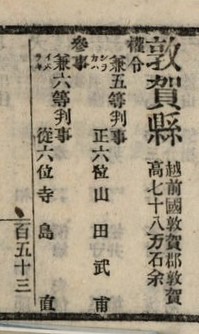 敦賀縣
越前國敦賀郡敦賀
高七十八万石余
權令
兼五等判事
正六位山田武甫
參事
兼六等判事
從六位寺島直
百五十三